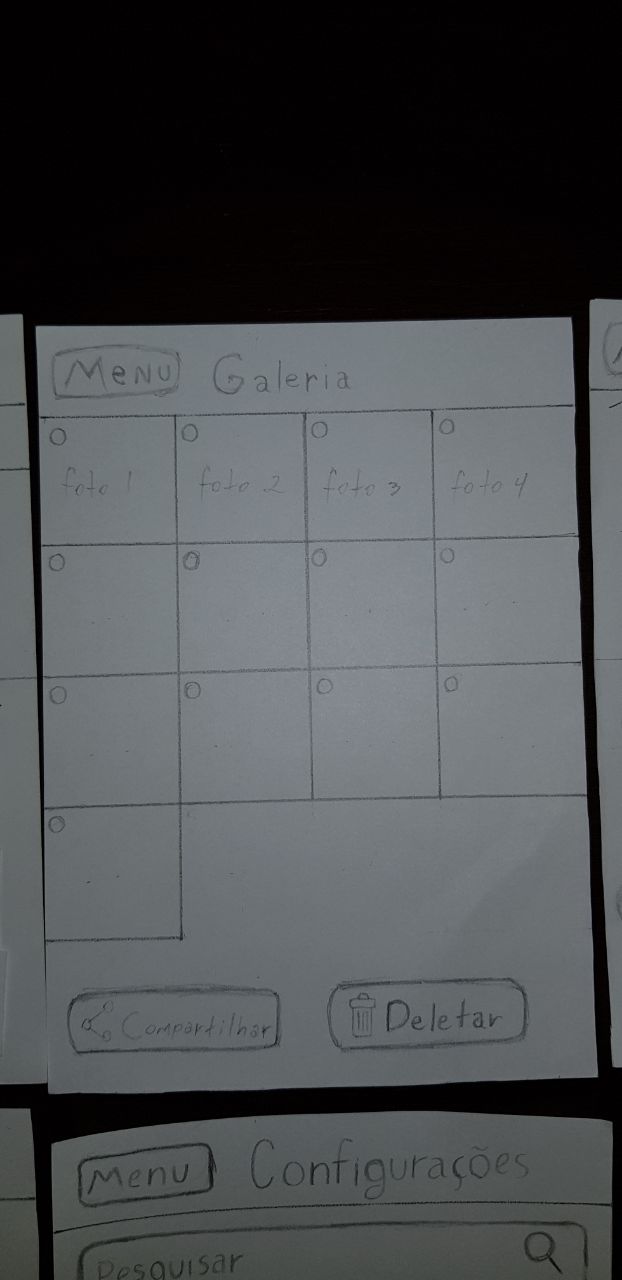 Menu Galeria
foto 1 foto 2 foto 3 foto 4
Compartilhar Deletar
Menu Configurações
Pesquisar